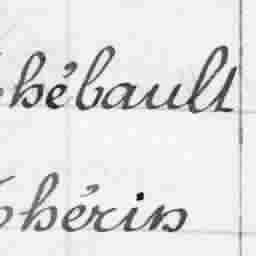 Thébault
Thérin